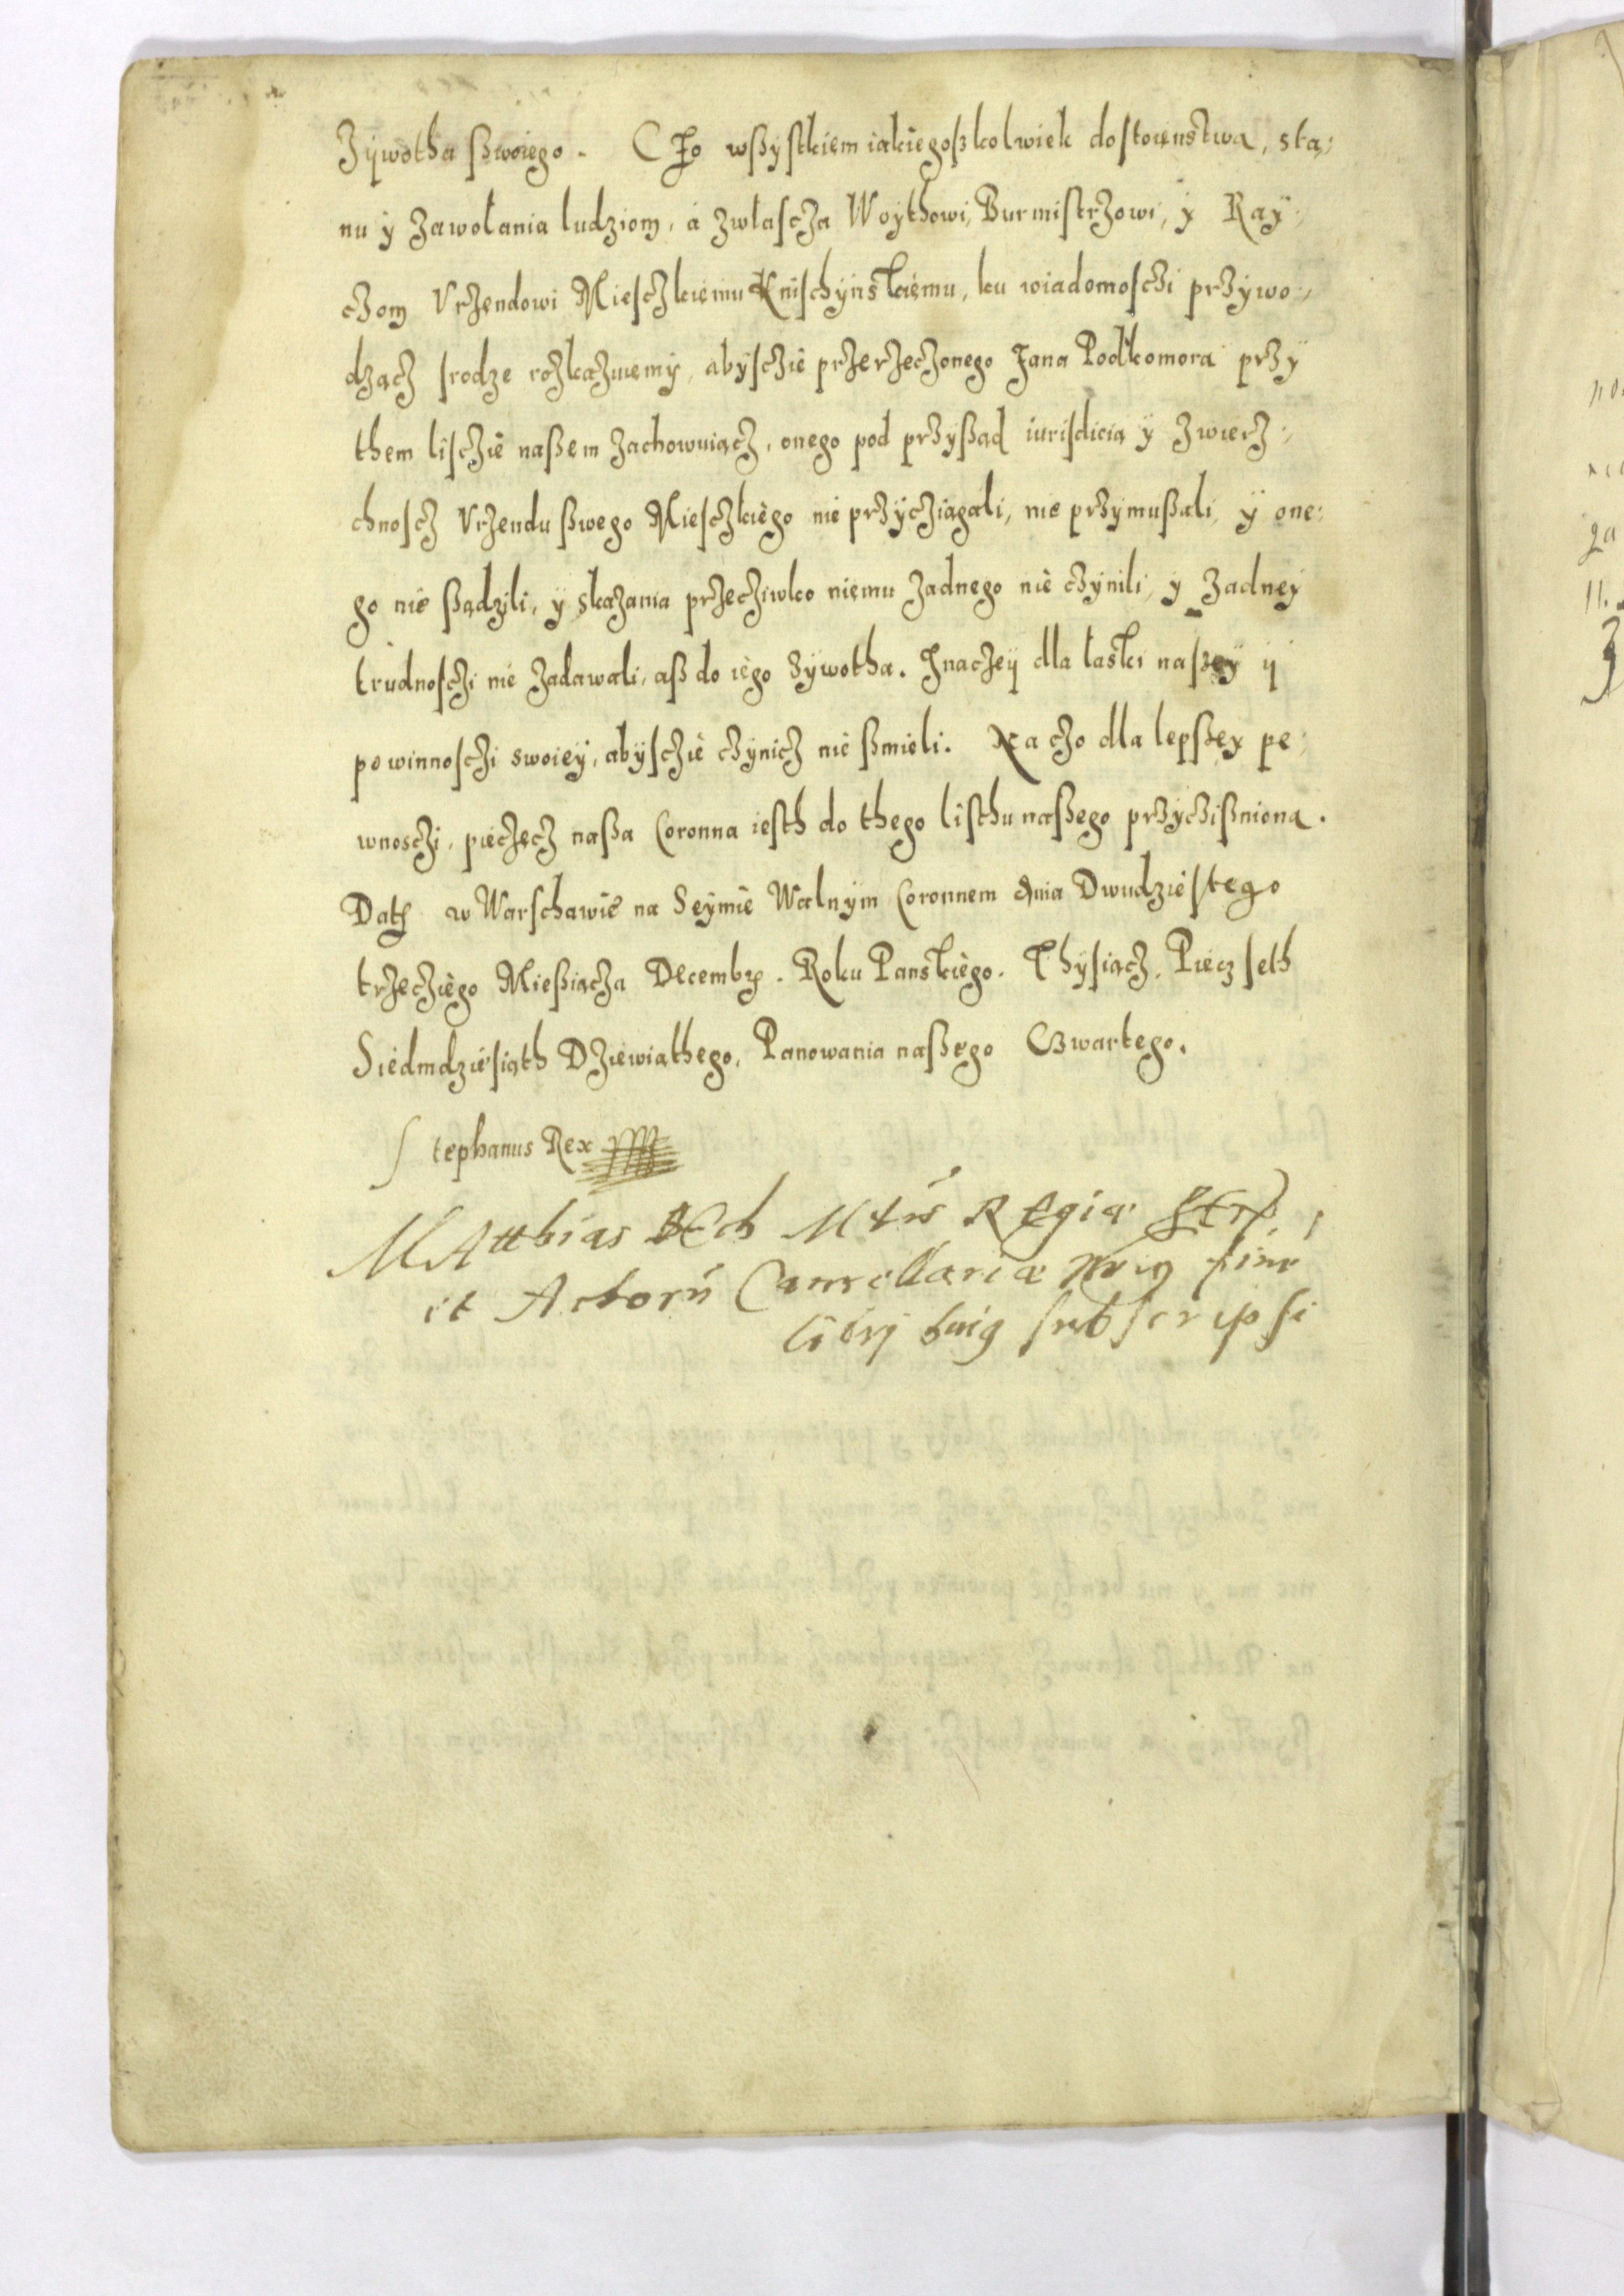 Zywotha ßwoiego. Czo wßystkiem iakiegoßkolwiek dostoienstwa, sta:
nu ÿ zawołania ludziom, á zwłascza Woythowi, Burmistrzowi, ÿ Raÿ:
czom Vrzendowi Miesczkiemu Knischÿnskiemu, ku wiadomosczi przÿwo:
dzącz srodze rozkazuiemÿ, abÿsczie przerzeczonego Jana Podkomora przy
them lisczie naßem zachowuiącz, onego pod przyßąd iurisdicią ÿ zwierz:
chnoscz Vrzendu ßwego Miesczkiego nie przÿcziągali, nie przymußali, ÿ one:
go nie ßądzili, ÿ skazania przecziwko niemu zadnego nie czÿnili, ÿ zadneÿ
trudnosczi nie zadawali, aß do iego zÿwotha. Inaczeÿ dla łaski naßeÿ ÿ
powinnosczi swoieÿ, abÿsczie czÿnicz nie ßmieli. Na czo dla lepßey pe:
wnosczi, pieczęcz naßa Coronna iesth do thego listhu naßego przÿczißniona.
Dath w Warschawie na Seÿmie Walnÿm Coronnem dnia Dwudziestego
trzecziego Mießiącza Decembr. Roku Panskiego. Thÿsiącz, Piecz seth
Siedmdziesiąth Dziewiąthego, Panowania naßego Czwartego.
Stephanus Rex
MAtthias Mtis REgiæ
et Actorū Cancellariæ
librj huiq subscripsi